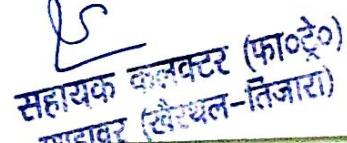 सहायक कलक्टर (फा०ट्रे०)
(खैरथल-तिजारा)